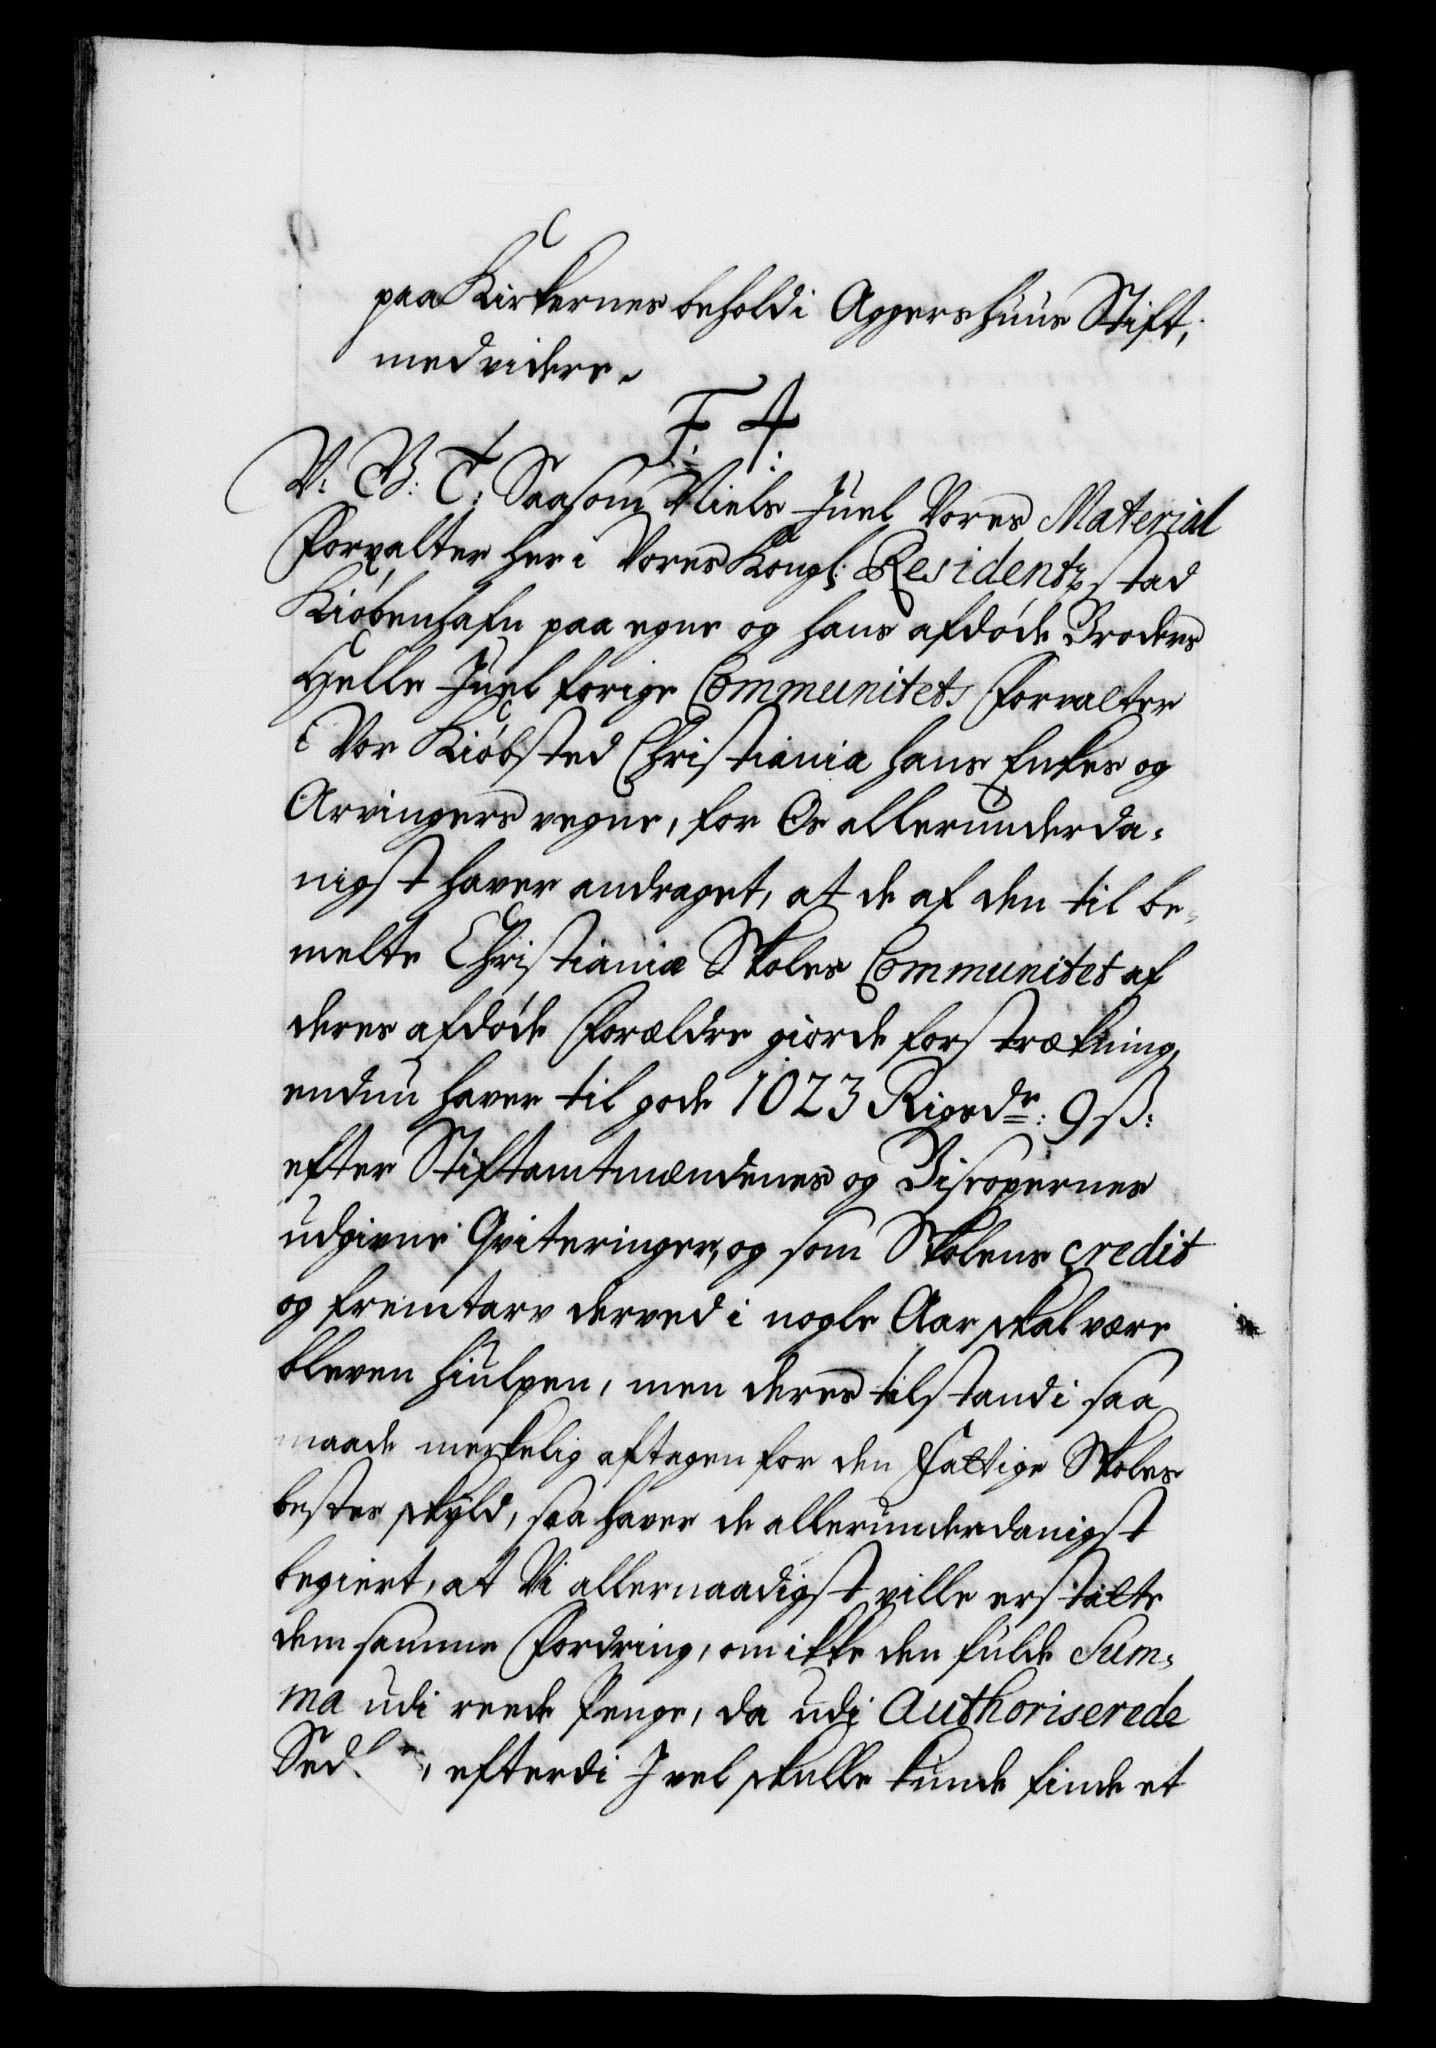 paa Kirkernes behold i Aggershuus Stift,
med videre.
F. 4.
V. G. T. Saasom Niels Juel Vores Material
Forvalter her i Vores Kongl: Residentz stad
Kiøbenhafn paa egne og hans afdøde Broders
Helle Juel forige Communitets Forvalter
i Vor Kiøbsted Christiania hans Enkes og
Arvingers vegne, for Os allerunderda-
nigst haver andraget, at de af den til be-
melte Christianiæ Skoles Communitet af
deres afdøde Forældre giorde forstrækning,
endnu haver til gode 1023 Rigsdr: 9 ß:
efter Stiftamtmændenes og Biscopernes
udgivne Qviteringer, og som Skolens credit
og fremtarv derved i nogle Aar skal være
bleven hiulpen, men deres tilstand i saa
maade merkelig aftagen for den Fattige Skoles
bestes skyld, saa haver de allerunderdanigst
begiert, at Vi allernaadigst ville erstatte
dem samme Fordring, om ikke den fulde Sum-
ma udi reede Penge, da udi Authoriserede
Sedl, efterdi J vel skulle kunde finde et